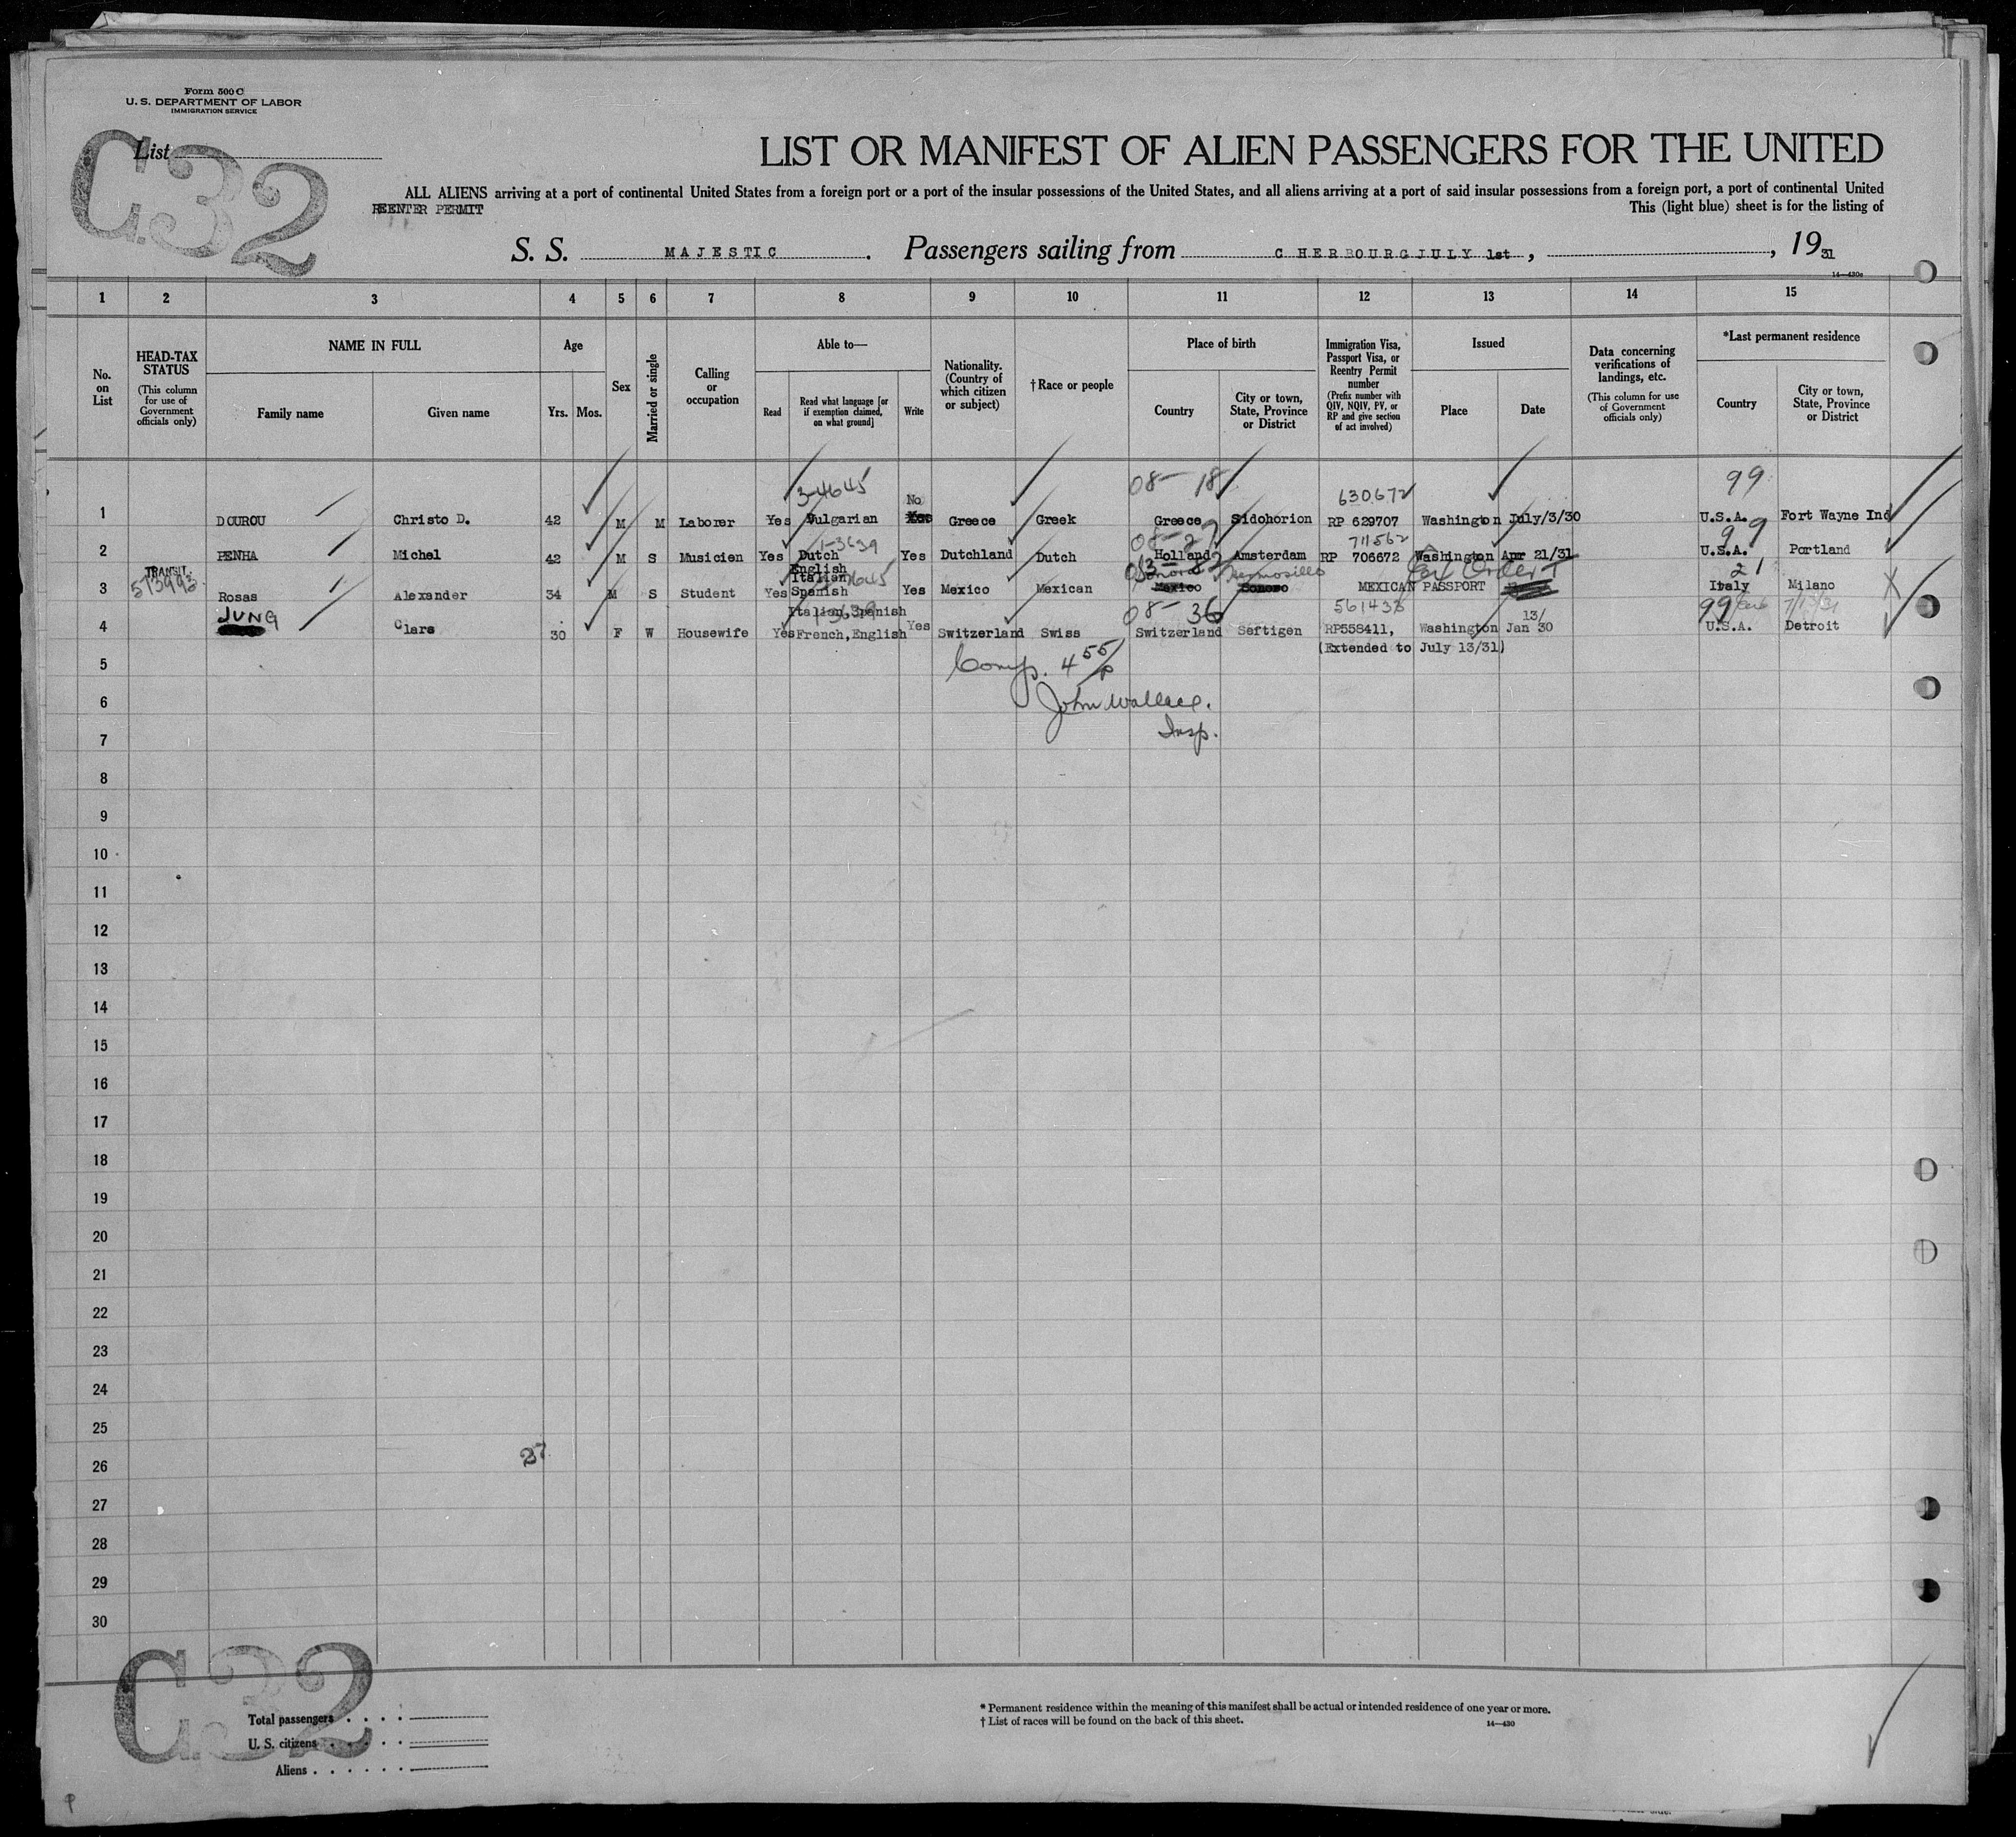 Form 500 C
U. S. DEPARTMENT OF LABOR
IMMIGRATION SERVICE
C.32
List
LIST OR MANIFEST OF ALIEN PASSENGERS FOR THE UNITED
ALL ALIENS arriving at a port of continental United States from a foreign port or a port of the insular possessions of the United States, and all aliens arriving at a port of said insular possessions from a foreign port, a port of continental United
REENTER PERMIT This (light blue) sheet is for the listing of
S. S. MAJESTIC . Passengers sailing from CHERBOURG JULY 1st , , 19 31
14—430c
1 2 3 4 5 6 7 8 9 10 11 12 13 14 15
No. on List
HEAD-TAX STATUS (This column for use of Government officials only)
NAME IN FULL
Family name Given name
Age
Yrs. Mos.
Sex
Married or single
Calling or occupation
Able to—
Read
Read what language [or if exemption claimed, on what ground]
Write
Nationality. (Country of which citizen or subject)
†Race or people
Place of birth
Country
City or town, State, Province or District
Immigration Visa, Passport Visa, or Reentry Permit number (Prefix number with QIV, NQIV, PV, or RP and give section of act involved)
Issued
Place Date
Data concerning verifications of landings, etc. (This column for use of Government officials only)
*Last permanent residence
Country
City or town, State, Province or District
3-4645 No 08-18 630672 99
1 DOUROU Christo D. 42 M M Laborer Yes Bulgarian Greece Greek Greece Sidohorion RP 629707 Washington July/3/30 U.S.A. Fort Wayne Ind
1-3639 08-27 711562 99
2 PENHA Michel 42 M S Musicien Yes Dutch Yes Dutchland Dutch Holland Amsterdam RP 706672 Washington Apr 21/31 U.S.A. Portland
TRANSIT.
573993
English
Italian
Sonora Hermosillo 21
3 Rosas Alexander 34 M S Student Yes Spanish Yes Mexico Mexican Mexico Sonoro MEXICAN PASSPORT Italy Milano
JUNG Italian Spanish 1-3639 08-36 561438 13/ 99
4 Clara 30 F W Housewife Yes French, English Yes Switzerland Swiss Switzerland Seftigen RP558411, Washington Jan 30 U.S.A. Detroit
(Extended to July 13/31)
5
Comp. 4 55/p
6
John Wallace.
7
Insp.
8
9
10
11
12
13
14
15
16
17
18
19
20
21
22
23
24
25
26
27
27
28
29
30
C.32
Total passengers
U. S. citizens
Aliens
* Permanent residence within the meaning of this manifest shall be actual or intended residence of one year or more.
† List of races will be found on the back of this sheet.
14—430